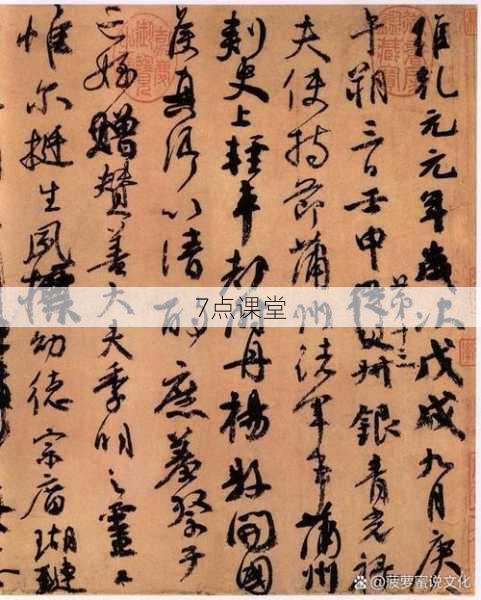 維乾元元年歲次戊戌九月庚
午朔三日壬申第十三叔銀青光祿
夫使持節蒲州諸軍事蒲州
刺史上輕車都尉丹楊縣開國
侯真卿以清酌庶羞祭于
亡姪贈贊善大夫季明之靈曰
惟爾挺生夙標幼德宗廟瑚璉
7点课堂
@菠萝蜜说文化